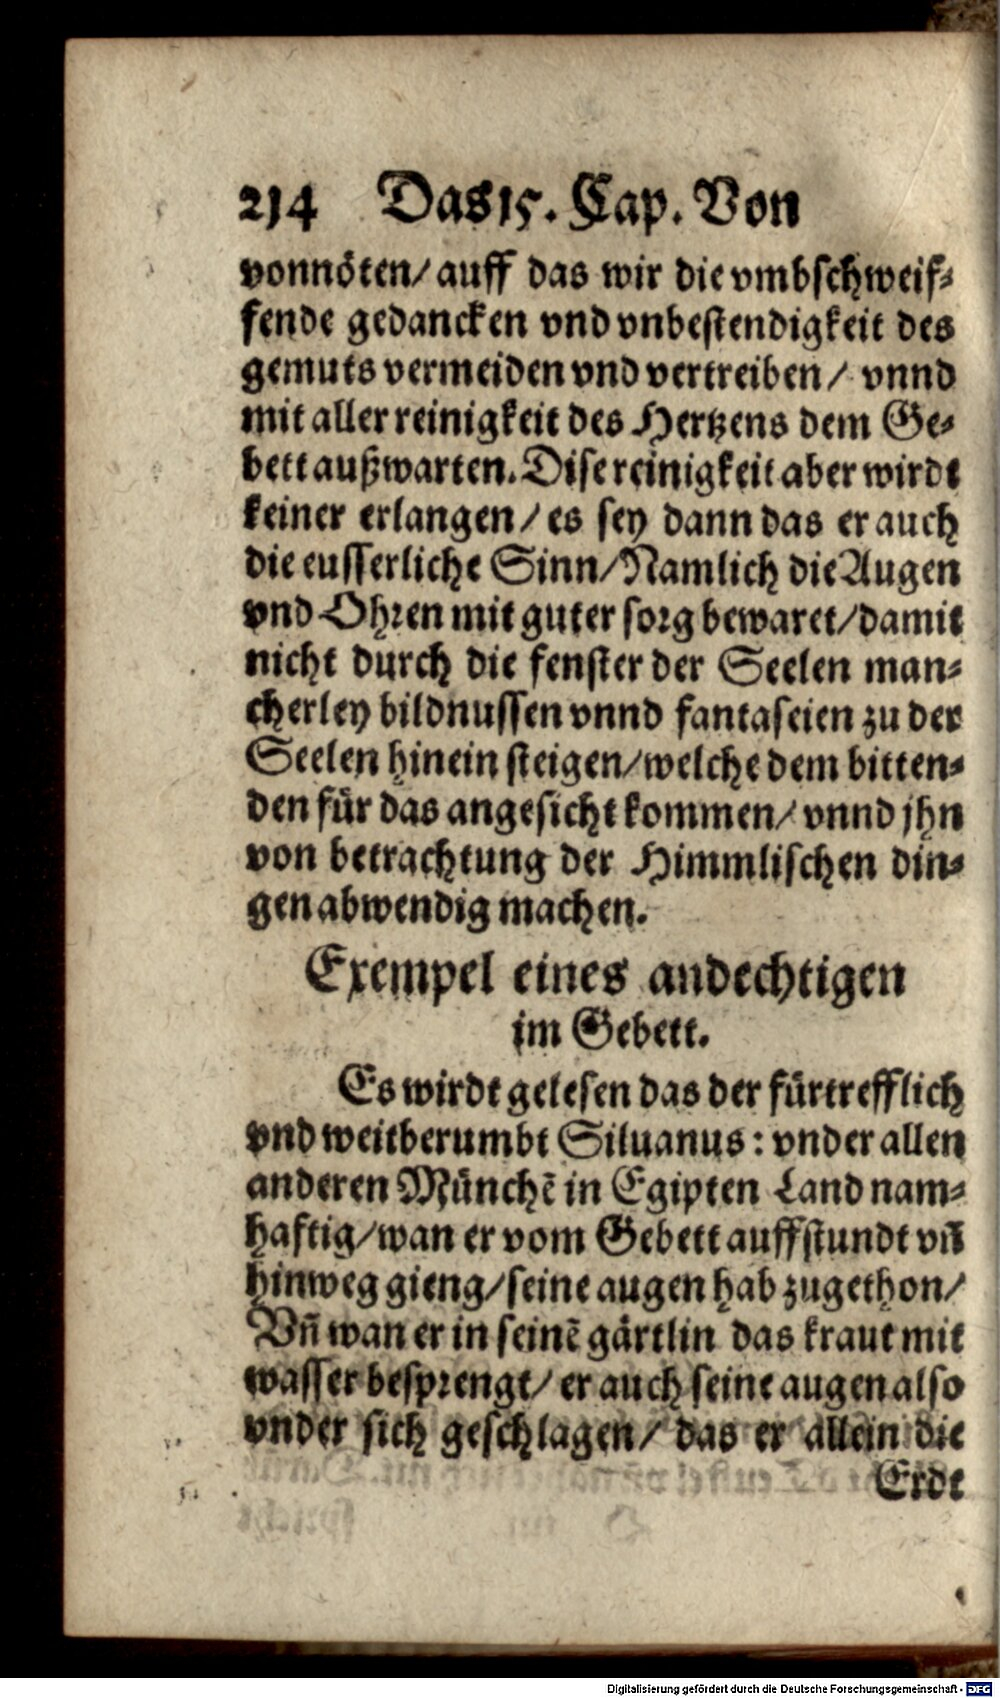 214 Das 15. Cap. Von
vonnöten/ auff das wir die vmbschweif-
fende gedancken vnd vnbestendigkeit des
gemuts vermeiden vnd vertreiben/ vnnd
mit aller reinigkeit des Hertzens dem Ge-
bett außwarten. Dise reinigkeit aber wirdt
keiner erlangen/ es sey dann das er auch
die eusserliche Sinn/ Namlich die Augen
vnd Ohren mit guter sorg bewaret/ damit
nicht durch die fenster der Seelen man-
cherley bildnussen vnnd fantaseien zu der
Seelen hinein steigen/ welche dem bitten-
den für das angesicht kommen/ vnnd jhn
von betrachtung der Himmlischen din-
gen abwendig machen.
Exempel eines andechtigen
im Gebett.
Es wirdt gelesen das der fürtrefflich
vnd weitberumbt Siluanus: vnder allen
anderen Münchē in Egipten Land nam-
hafftig/ wan er vom Gebett auffstundt vñ
hinweg gieng/ seine augen hab zugethon/
Vñ wan er in seinē gärtlin das kraut mit
wasser besprengt/ er auch seine augen also
vnder sich geschlagen/ das er allein die
Erdt
Digitalisierung gefördert durch die Deutsche Forschungsgemeinschaft - DFG